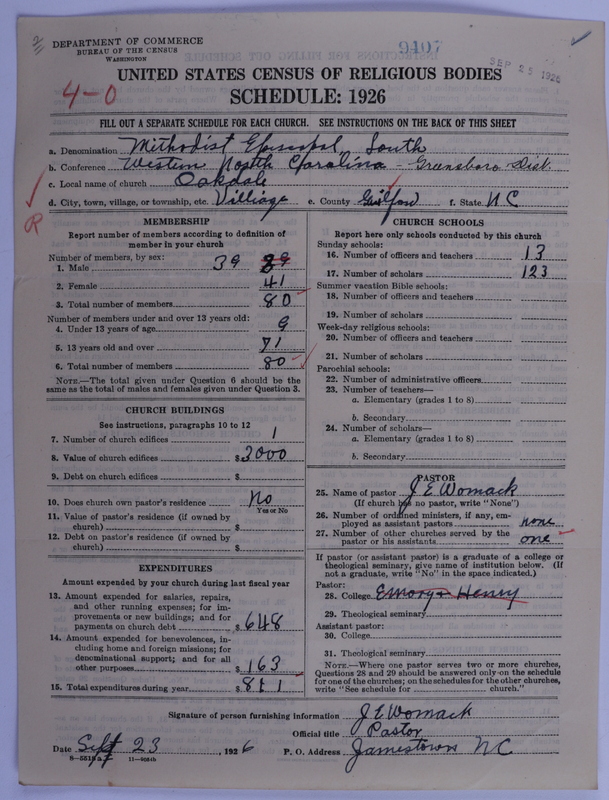 2
DEPARTMENT OF COMMERCE
BUREAU OF THE CENSUS
WASHINGTON
9407
SEP 25 1926
4-0
UNITED STATES CENSUS OF RELIGIOUS BODIES
SCHEDULE: 1926
FILL OUT A SEPARATE SCHEDULE FOR EACH CHURCH. SEE INSTRUCTIONS ON THE BACK OF THIS SHEET
a. Denomination Methodist Episcopal South
b. Conference Western North Carolina - Greensboro Dist.
c. Local name of church Oakdale
d. City, town, village, or township, etc. Villiage e. County Guilford f. State NC
R
MEMBERSHIP
Report number of members according to definition of
member in your church
Number of members, by sex:
1. Male 39 89
2. Female 41
3. Total number of members 80
Number of members under and over 13 years old:
4. Under 13 years of age 9
5. 13 years old and over 71
6. Total number of members 80
NOTE.—The total given under Question 6 should be the
same as the total of males and females given under Question 3.
CHURCH BUILDINGS
See instructions, paragraphs 10 to 12
7. Number of church edifices 1
8. Value of church edifices $3000
9. Debt on church edifices $
10. Does church own pastor's residence No
Yes or No
11. Value of pastor's residence (if owned by
church) $
12. Debt on pastor's residence (if owned by
church) $
EXPENDITURES
Amount expended by your church during last fiscal year
13. Amount expended for salaries, repairs,
and other running expenses; for im-
provements or new buildings; and for
payments on church debt $648
14. Amount expended for benevolences, in-
cluding home and foreign missions; for
denominational support; and for all
other purposes $163
15. Total expenditures during year $811
CHURCH SCHOOLS
Report here only schools conducted by this church
Sunday schools:
16. Number of officers and teachers 13
17. Number of scholars 123
Summer vacation Bible schools:
18. Number of officers and teachers
19. Number of scholars
Week-day religious schools:
20. Number of officers and teachers
21. Number of scholars
Parochial schools:
22. Number of administrative officers
23. Number of teachers—
a. Elementary (grades 1 to 8)
b. Secondary
24. Number of scholars—
a. Elementary (grades 1 to 8)
b. Secondary
PASTOR
25. Name of pastor J E Womack
(If church has no pastor, write "None")
26. Number of ordained ministers, if any, em-
ployed as assistant pastors none
27. Number of other churches served by the
pastor or his assistants one
If pastor (or assistant pastor) is a graduate of a college or
theological seminary, give name of institution below. (If
not a graduate, write "No" in the space indicated.)
Pastor:
28. College Emory & Henry
29. Theological seminary
Assistant pastor:
30. College
31. Theological seminary
NOTE.—Where one pastor serves two or more churches,
Questions 28 and 29 should be answered only on the schedule
for one of the churches; on the schedules for the other churches,
write "See schedule for church."
Signature of person furnishing information J E Womack
Official title Pastor
Date Sept 23, 1926 P. O. Address Jamestown NC